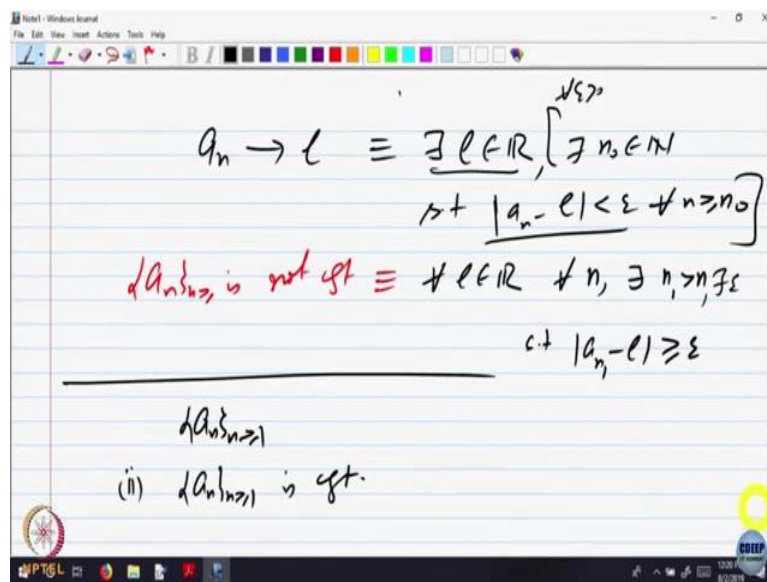 Note1 - Windows Journal
File Edit View Insert Actions Tools Help
B I
∀ε>0
a_n → l ≡ ∃ l ∈ ℝ, [ ∃ n_0 ∈ ℕ
s.t |a_n - l| < ε ∀ n ≥ n_0 ]
{a_n}_{n≥1} is not cgt ≡ ∀ l ∈ ℝ ∀ n, ∃ n_1 > n, ∃ ε
s.t |a_{n_1} - l| ≥ ε
{a_n}_{n≥1}
(ii) {a_n}_{n≥1} is cgt.
NPTEL
CDEEP
8/2/2018